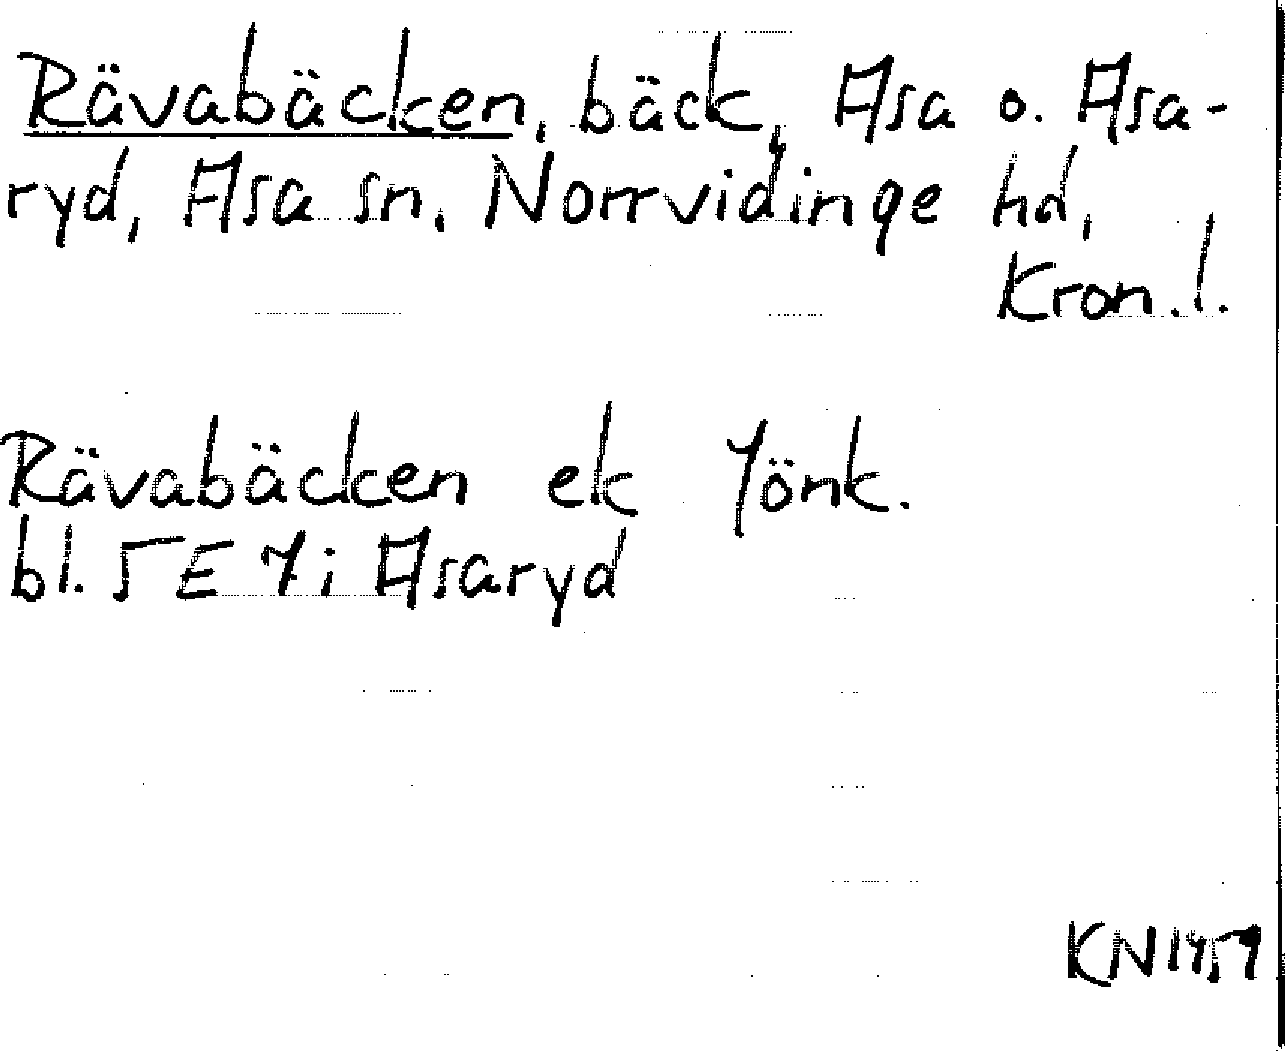 Rävabäcken, bäck, Asa o. Asa-
ryd, Asa sn, Norrvidinge hd,
Kron.l.
Rävabäcken ek Jönk.
bl. 5E 7 i Asaryd
KN 1959